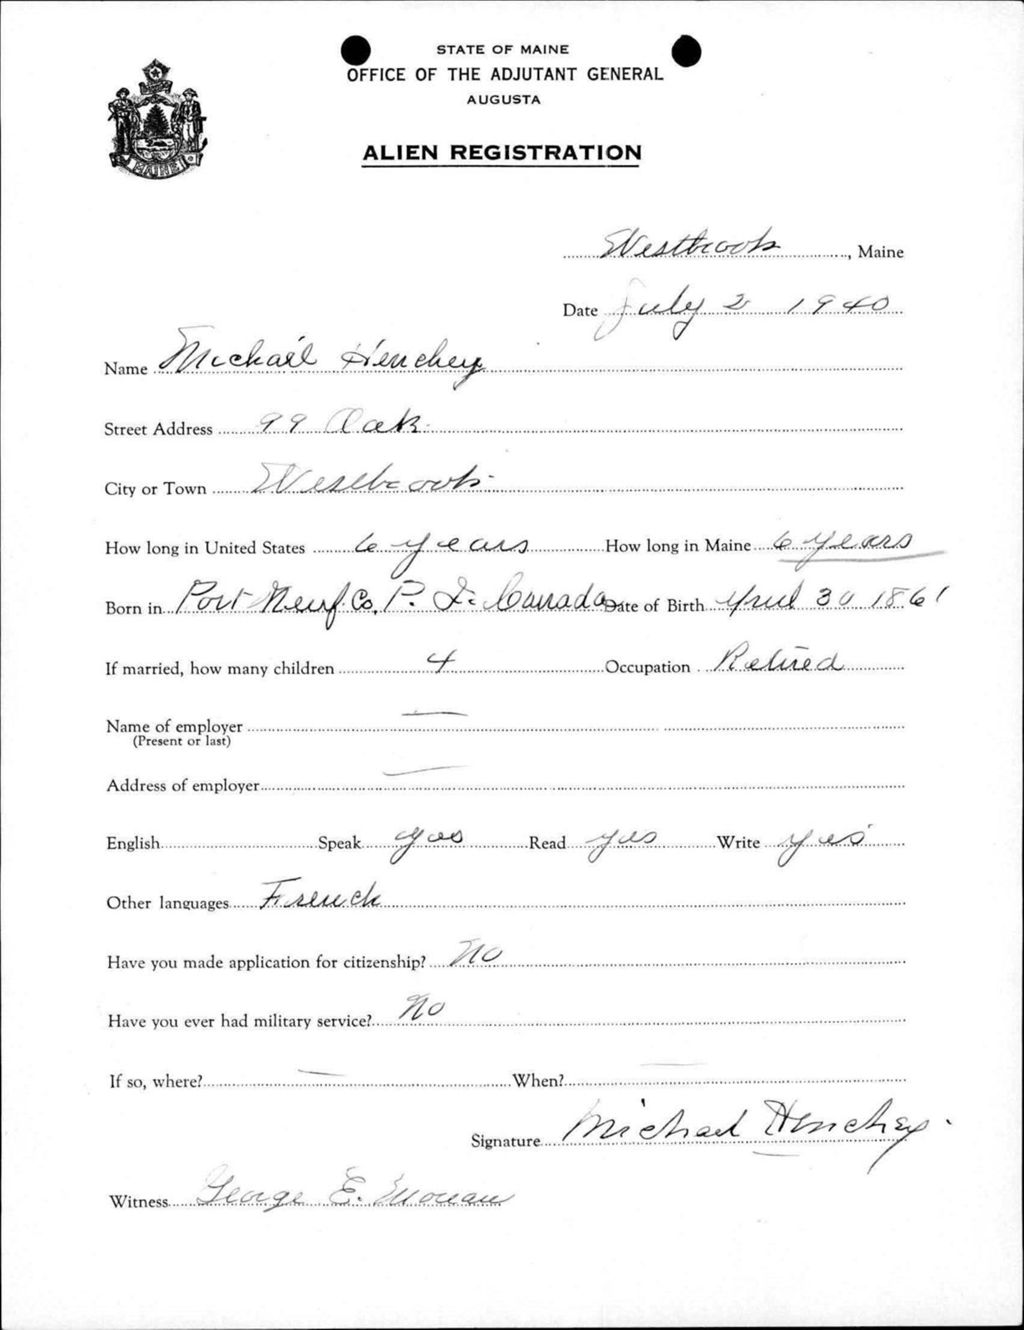 STATE OF MAINE
OFFICE OF THE ADJUTANT GENERAL
AUGUSTA
ALIEN REGISTRATION
MAINE
Westbrook, Maine
Date July 2 1940
Name Michael Henchey
Street Address 99 Oak
City or Town Westbrook
How long in United States 6 years How long in Maine 6 years
Born in Port Neuf Co, P. Q. Canada Date of Birth April 30 1861
If married, how many children 4 Occupation Retired
Name of employer —
(Present or last)
Address of employer —
English Speak yes Read yes Write yes
Other languages French
Have you made application for citizenship? No
Have you ever had military service? No
If so, where? — When? —
Signature Michael Henchey
Witness George E. Moreau